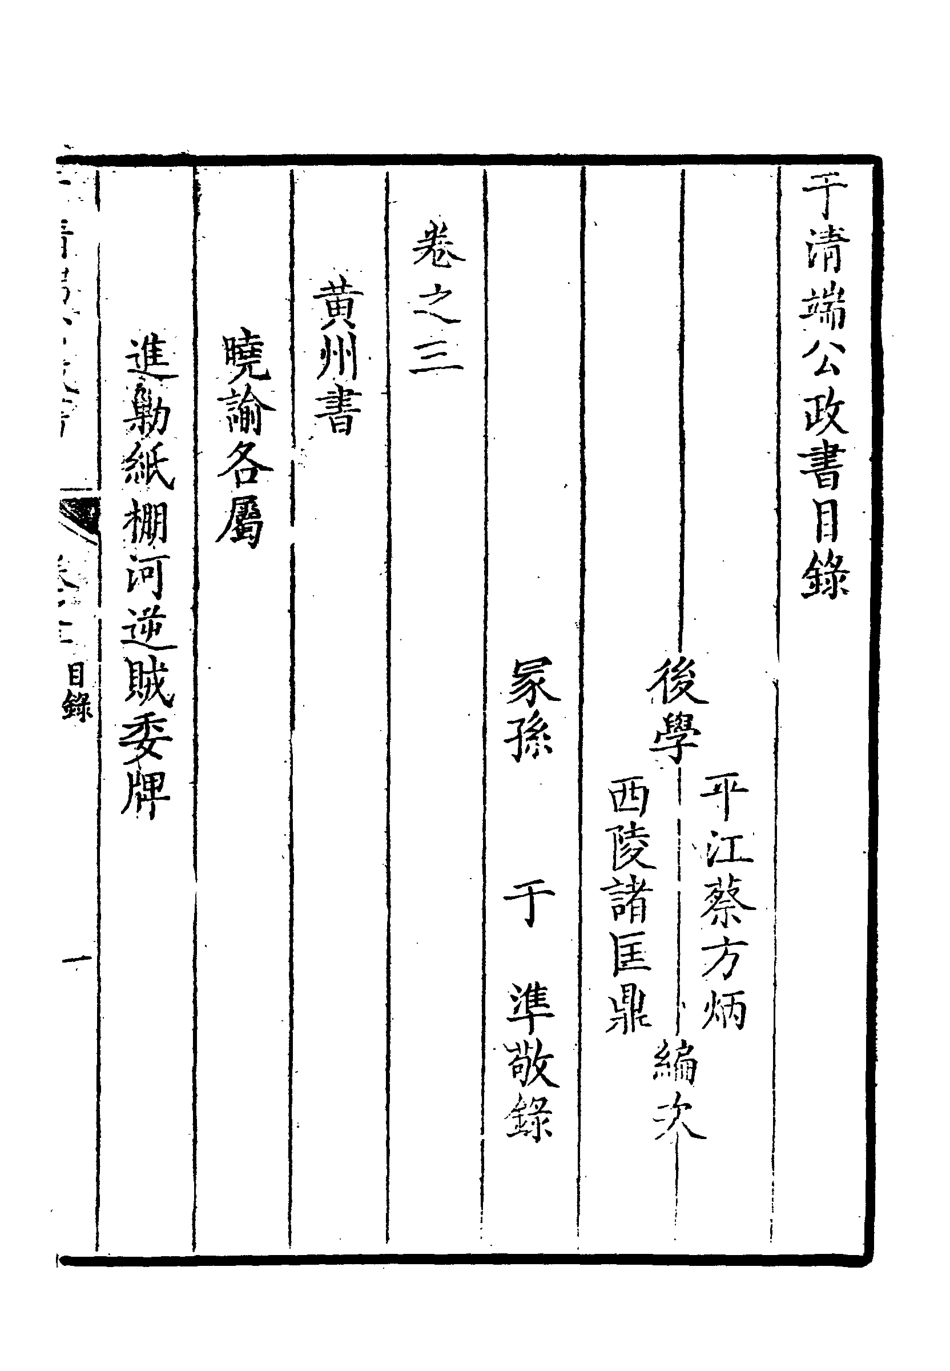 于清端公政書目錄
後學
平江蔡方炳
西陵諸匡鼎
編次
冡孫 于 準敬錄
卷之三
黃州書
曉諭各屬
進勦紙棚河逆賊委牌
目錄
一